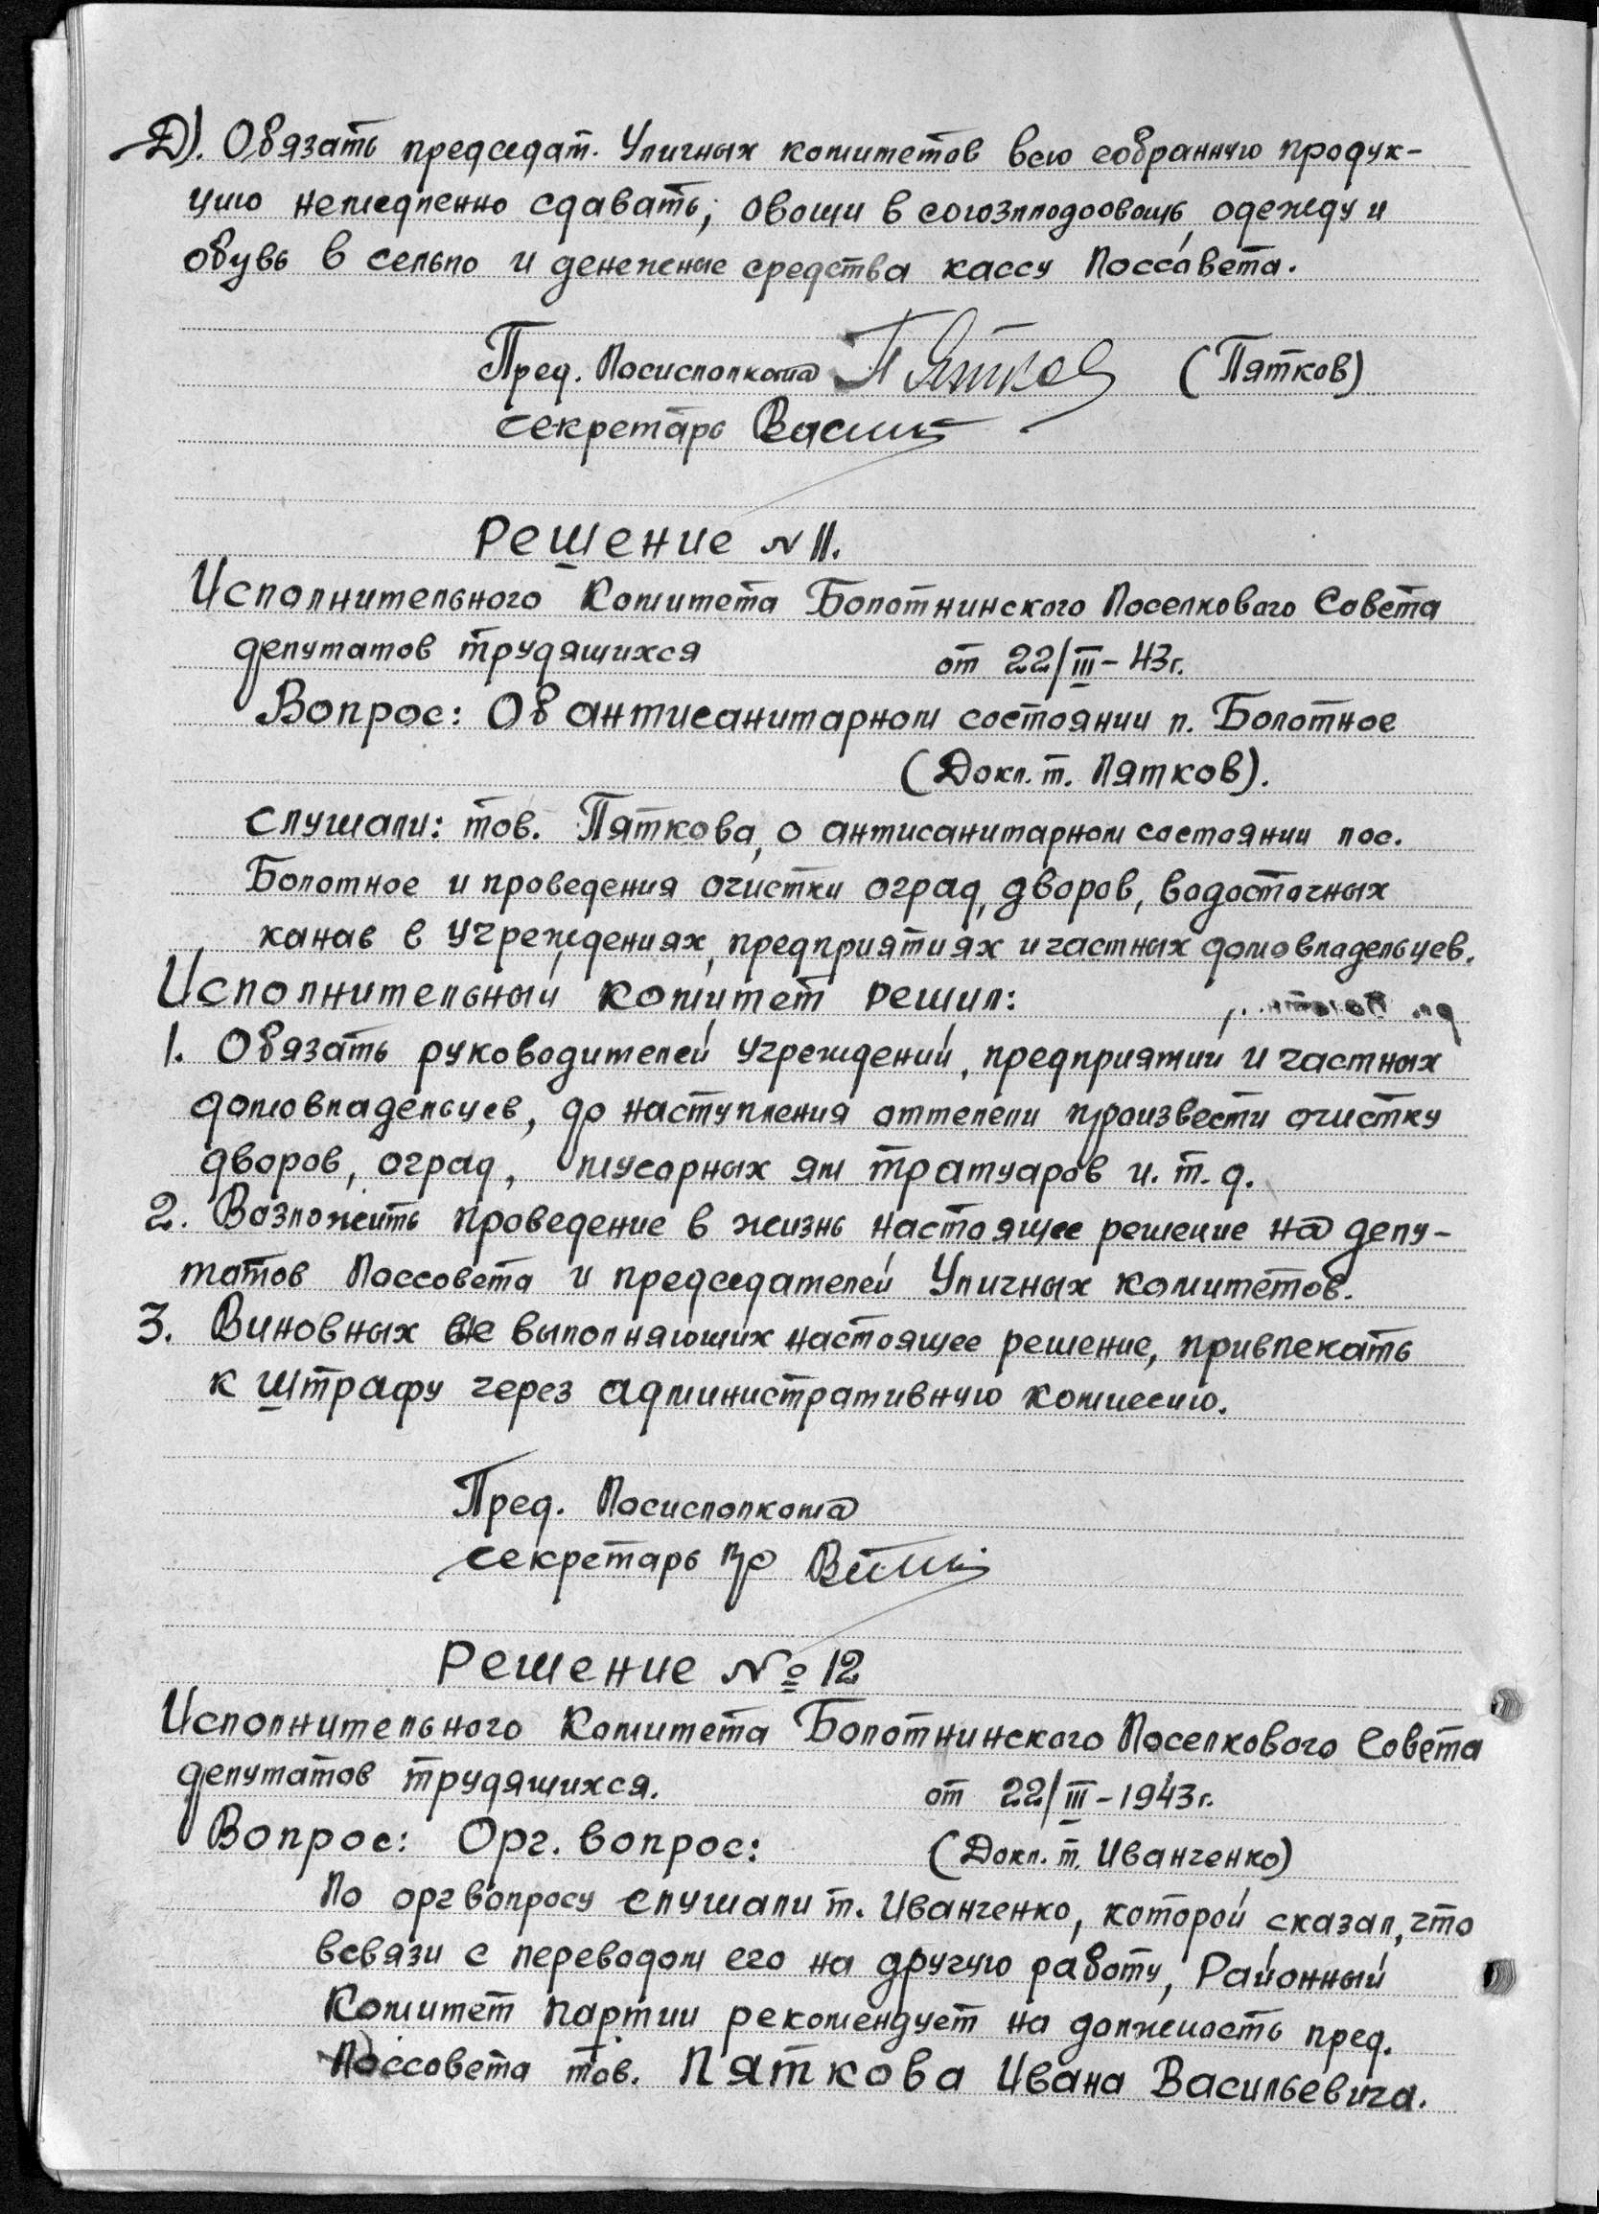 Д). Обязать председат. Уличных комитетов всю собранную продук-
цию немедленно сдавать; овощи в союзплодоовощь, одежду и
обувь в сельпо и денежные средства кассу Поссавета.
Пред. Посисполкома Пятков (Пятков)
секретарь
Решение N 11.
Исполнительного Комитета Болотнинского Поселкового Совета
депутатов трудящихся от 22/III-43г.
Вопрос: Об антисанитарном состоянии п. Болотное
(Докл. т. Пятков).
Слушали: тов. Пяткова, о антисанитарном состоянии пос.
Болотное и проведения очистки оград, дворов, водосточных
канав в учреждениях, предприятиях и частных домовладельцев.
Исполнительный комитет решил:
1. Обязать руководителей учреждений, предприятий и частных
домовладельцев, до наступления оттепели произвести очистку
дворов, оград, мусорных ям тратуаров и. т. д.
2. Возложить проведение в жизнь настоящее решение на депу-
татов Поссовета и председателей Уличных комитетов.
3. Виновных не выполняющих настоящее решение, привлекать
к штрафу через административную комиссию.
Пред. Посисполкома
секретарь
Решение № 12
Исполнительного Комитета Болотнинского Поселкового Совета
депутатов трудящихся. от 22/III-1943г.
Вопрос: Орг. вопрос: (Докл. т. Иванченко)
По орг вопросу слушали т. Иванченко, которой сказал, что
всвязи с переводом его на другую работу, Районный
Комитет партии рекомендует на должность пред.
Поссовета тов. Пяткова Ивана Васильевича.